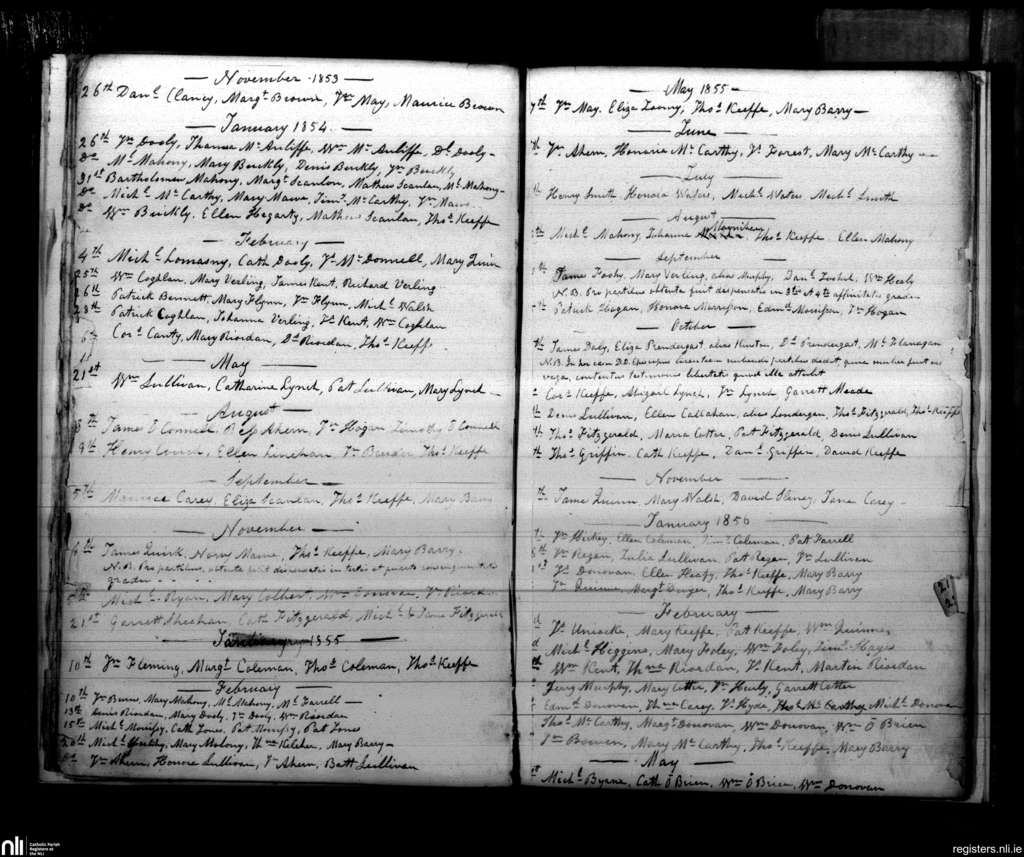 November 1853
26th Danl Clancy, Margt Brown, Jno May, Maurice Brown
January 1854
26th Jno Dooly, Thamsa McAuliffe, Wm McAuliffe, Dl Dooly
Do Ml Mahony, Mary Buckly, Denis Buckly, Jno Buckly
31st Bartholomew Mahony, Margt Scanlon, Mathew Scanlan, Ml Mahony
Do Michl McCarthy, Mary Mawe, Timy McCarthy, Jno Mawe
Do Wm Buickly, Ellen Hegarty, Mathew Scanlan, Thos Keeffe
February
4th Michl Lomasny, Cath Dooly, Js McDonnell, Mary Quin
25th Wm Coghlan, Mary Verling, James Kent, Richard Verling
26th Patrick Bennett, Mary Flynn, Jno Flynn, Michl Walsh
28th Patrick Coghlan, Johanna Verling, Js Kent, Wm Coghlan
Cors Canty, Mary Riordan, Dl Riordan, Thos Keeff
May
21st Wm Sullivan, Catharine Lynch, Pat Sullivan, Mary Lynch
August
8th James O Connell, Bess Ahern, Jno Hogan, Timothy O Connell
9th Henry, Ellen Linehan, Thos Keeffe
September
5th Maurice Carey, Eliza Scanlan, Thos Keeffe, Mary Barry
November
6th James Quirk, Nory Mawe, Thos Keeffe, Mary Barry
N.B. Pro partibus, obtenta fuit dispensatio in tertio et quarto consanguinitatis
gradu
Michl Ryan, Mary Colbert, Wm Donovan, Jno Riordan
21st Garrett Sheehan, Cath Fitzgerald, Michl & Jane Fitzgerald
January 1855
10th Jno Fleming, Margt Coleman, Thos Coleman, Thos Keeffe
February
10th Jno Burns, Mary Mahony, Ml Mahony, Ml Farrell
13th Denis Riordan, Mary Dooly, Jno Dooly, Wm Riordan
15th Michl Morrissy, Cath Jones, Pat Morrissy, Pat Jones
20th Michl, Mary Molony, Thos Kelcher, Mary Barry
Do Jno Ahern, Honora Sullivan, Jno Ahern, Batt Sullivan
May 1855
7th Jno May, Eliza Looney, Thos Keeffe, Mary Barry
June
th Jno Ahern, Honoria McCarthy, Js Forest, Mary McCarthy
July
th Henry Smith, Honora Waters, Michl Waters, Michl Smith
August
th Michl Mahony, Johanna Moynihan, Thos Keeffe, Ellen Mahony
September
th James Foohy, Mary Verling, alias Murphy, Danl, Wm Healy
N.B. Pro partibus obtenta fuit dispensatio in 3tio & 4to affinitatis gradu
th Patrick Hogan, Honora Morrison, Edmd Morrison, Jno Hogan
October
th James Daly, Eliza Prendergast, alias Hunton, Dl Prendergast, Ml Flanagan
Cors Keeffe, Abigail Lynch, Jno Lynch, Garrett Meade
th Denis Sullivan, Ellen Callahan, alias Londergan, Thos Fitzgerald, Thos Keeffe
th Thos Fitzgerald, Maria Cotter, Pat Fitzgerald, Denis Sullivan
th Thos Griffin, Cath Keeffe, Danl Griffin, David Keeffe
November
th James Quinn, Mary Walsh, David, Jane Carey
January 1856
th Jno Hickey, Ellen Coleman, Timy Coleman, Pat Farrell
8th Jno Regan, Julia Sullivan, Pat Regan, Jno Sullivan
Jno Donovan, Ellen Heafy, Thos Keeffe, Mary Barry
Jno Quinn, Margt Dwyer, Thos Keeffe, Mary Barry
February
d Js Uniacke, Mary Keeffe, Pat Keeffe, Wm
d Michl Higgins, Mary Foley, Wm Foley, Timy Hayes
th Wm Kent, Riordan, Js Kent, Martin Riordan
Jerry Murphy, Mary Cotter, Jno Healy, Garrett Cotter
Edmd Donovan, Carey, Js Hyde, Michl Donovan
Thos McCarthy, Margt Donovan, Wm Donovan, Wm O'Brien
Jno Bowen, Mary McCarthy, Thos Keeffe, Mary Barry
May
st Michl Byrne, Cath O'Brien, Wm O'Brien, Wm Donovan
nli
Catholic Parish
Registers at
the NLI
registers.nli.ie